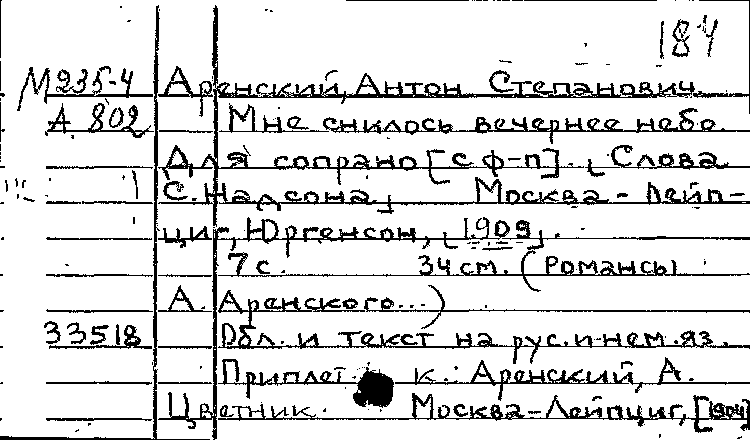 184
М235-4 Аренский, Антон Степанович.
А 802 Мне снилось вечернее небо.
Для сопрано [с ф-п]. [Слова
С. Надсона] Москва - Лейп-
циг, Юргенсон, [1909].
7 с. 34 см. (Романсы
А. Аренского...)
33518 Обл. и текст на рус. и нем. яз.
Приплет. к: Аренский, А.
Цветник. Москва-Лейпциг, [1904]